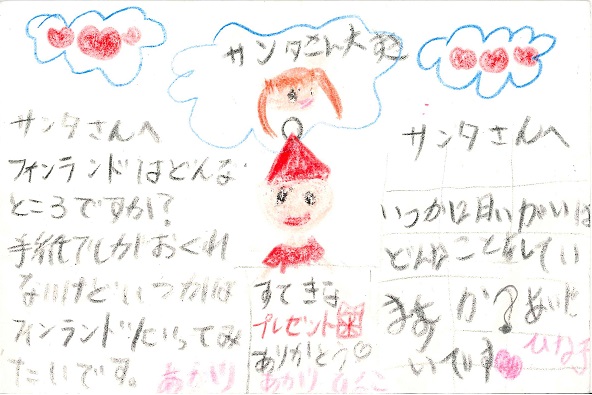 サンタさん大好
サンタさんへ
フィンランドはどんな
ところですか?
手紙でしかおくれ
ないけどいつかは
フィンランドにいってみ
たいです。 あかり
すてきな
プレゼント
ありがとう
あかり ひなこ
サンタさんへ
いつかは
どんなことをしてい
ますか?あいた
いです
ひな子